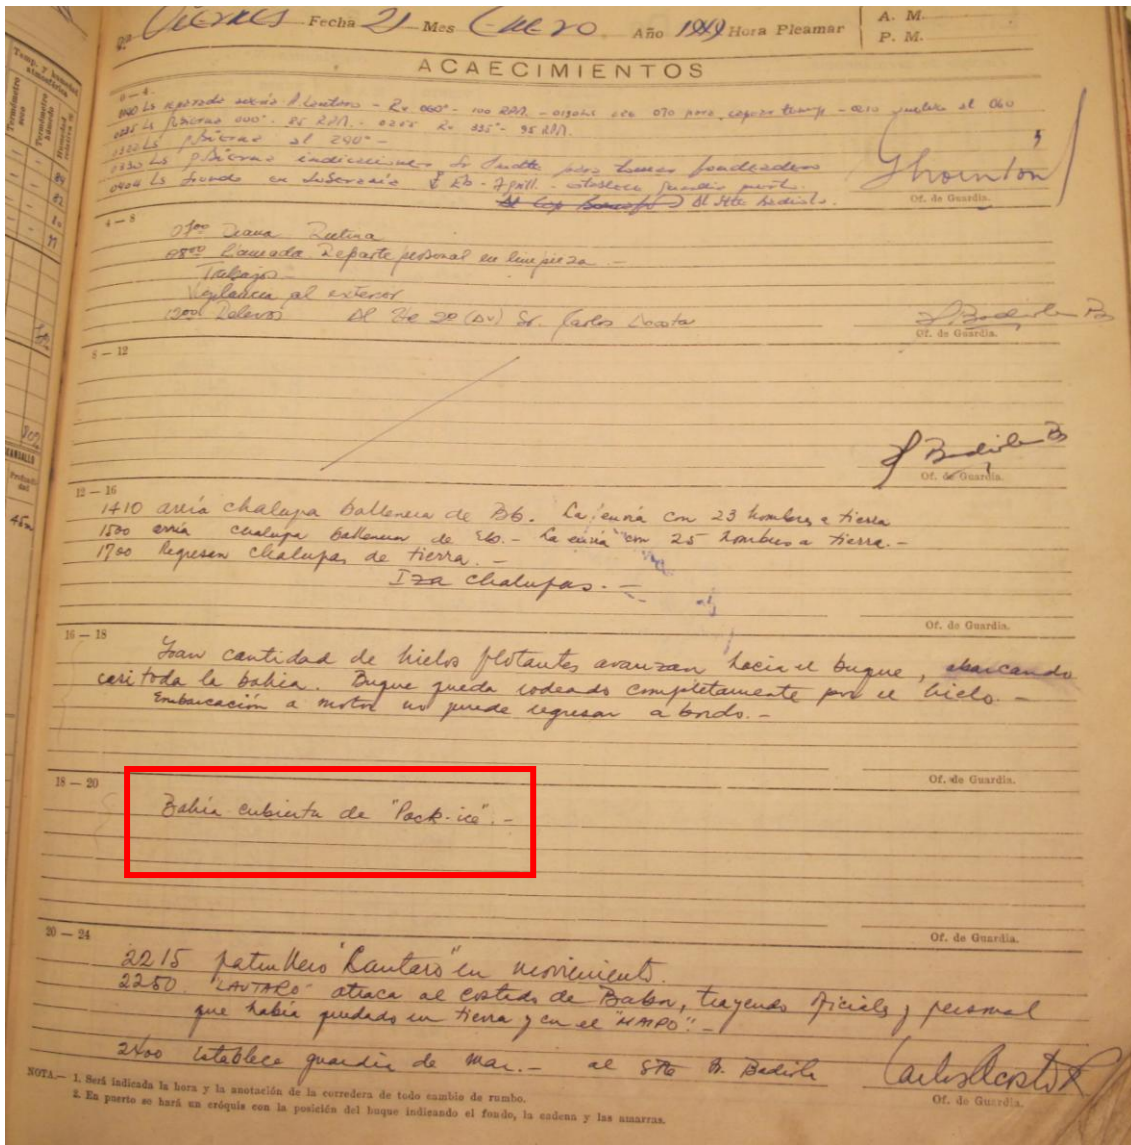 Viernes Fecha 21 Mes Enero Año 1949 Hora Pleamar
A. M.
P. M.
ACAECIMIENTOS
Temp. y humedad
atmosférica
Termómetro
seco
Termómetro
húmedo
Humedad
relativa %
0 — 4
0325 Ls 000° - 85 RPM. - 0255 Rv 335° - 95 RPM.
al 290° -
indicaciones para tomar fondeadero
0404 Ls fondo en Soberanía
Al Stte Badiola.
Thornton
Of. de Guardia.
4 — 8
0700 Diana Rutina
0800 Llamada Reparte personal en limpieza. -
Trabajos -
Vigilancia al exterior
1200 Relevos Al Tte 2° (Av) Sr. Carlos Acosta
Badiola
Of. de Guardia.
8 — 12
Badiola
Of. de Guardia.
12 — 16
1410 arría chalupa ballenera de Bb. La envía con 23 hombres a tierra
1500 arría chalupa ballenera de Eb. - La envía con 25 hombres a tierra. -
1700 Regresan chalupas de tierra. -
Iza chalupas. -
Of. de Guardia.
16 — 18
Gran cantidad de hielos flotantes avanzan hacia el buque, abarcando
casi toda la bahía. Buque queda rodeado completamente por el hielo. -
Embarcación a motor no puede regresar a bordo. -
Of. de Guardia.
18 — 20
Bahía cubierta de "Pack-ice". -
Of. de Guardia.
20 — 24
2215 patrullero "Lautaro" en movimiento.
2250. "LAUTARO" atraca al costado de Babor, trayendo oficiales y personal
que había quedado en tierra y en el "MAIPO". -
2400 Establece guardia de mar. - al Stte B. Badiola
Carlos Acosta R
Of. de Guardia.
NOTA.— 1. Será indicada la hora y la anotación de la corredera de todo cambio de rumbo.
2. En puerto se hará un cróquis con la posición del buque indicando el fondo, la cadena y las amarras.